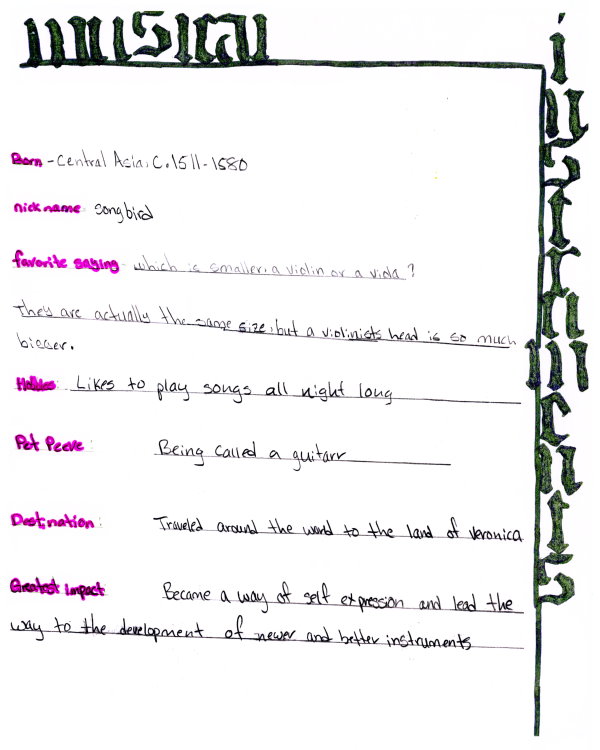 musical
instruments
Born - Central Asia, C. 1511-1580
nickname: songbird
favorite saying - which is smaller, a violin or a viola?
They are actually the same size, but a violinists head is so much
bigger.
Hobbies: Likes to play songs all night long
Pet Peeve: Being called a guitarr
Destination: Traveled around the world to the land of veronica
Greatest Impact Became a way of self expression and lead the
way to the development of newer and better instruments